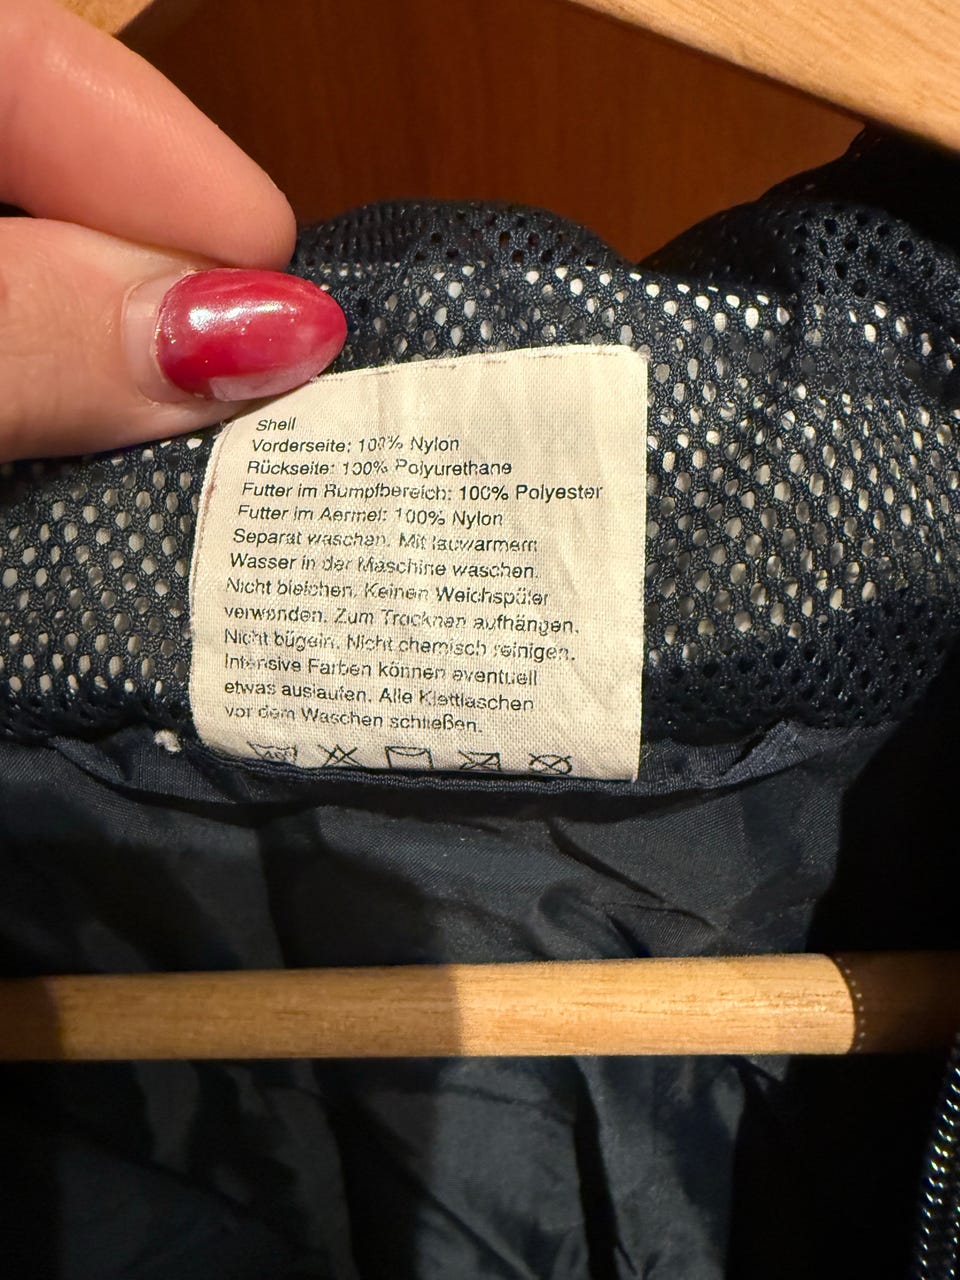 Shell
Vorderseite: 100% Nylon
Rückseite: 100% Polyurethane
Futter im Rumpfbereich: 100% Polyester
Futter im Aermel: 100% Nylon
Separat waschen. Mit lauwarmem
Wasser in der Maschine waschen.
Nicht bleichen. Keinen Weichspüler
verwenden. Zum Trocknen aufhängen.
Nicht bügeln. Nicht chemisch reinigen.
Intensive Farben können eventuell
etwas auslaufen. Alle Klettlaschen
vor dem Waschen schließen.